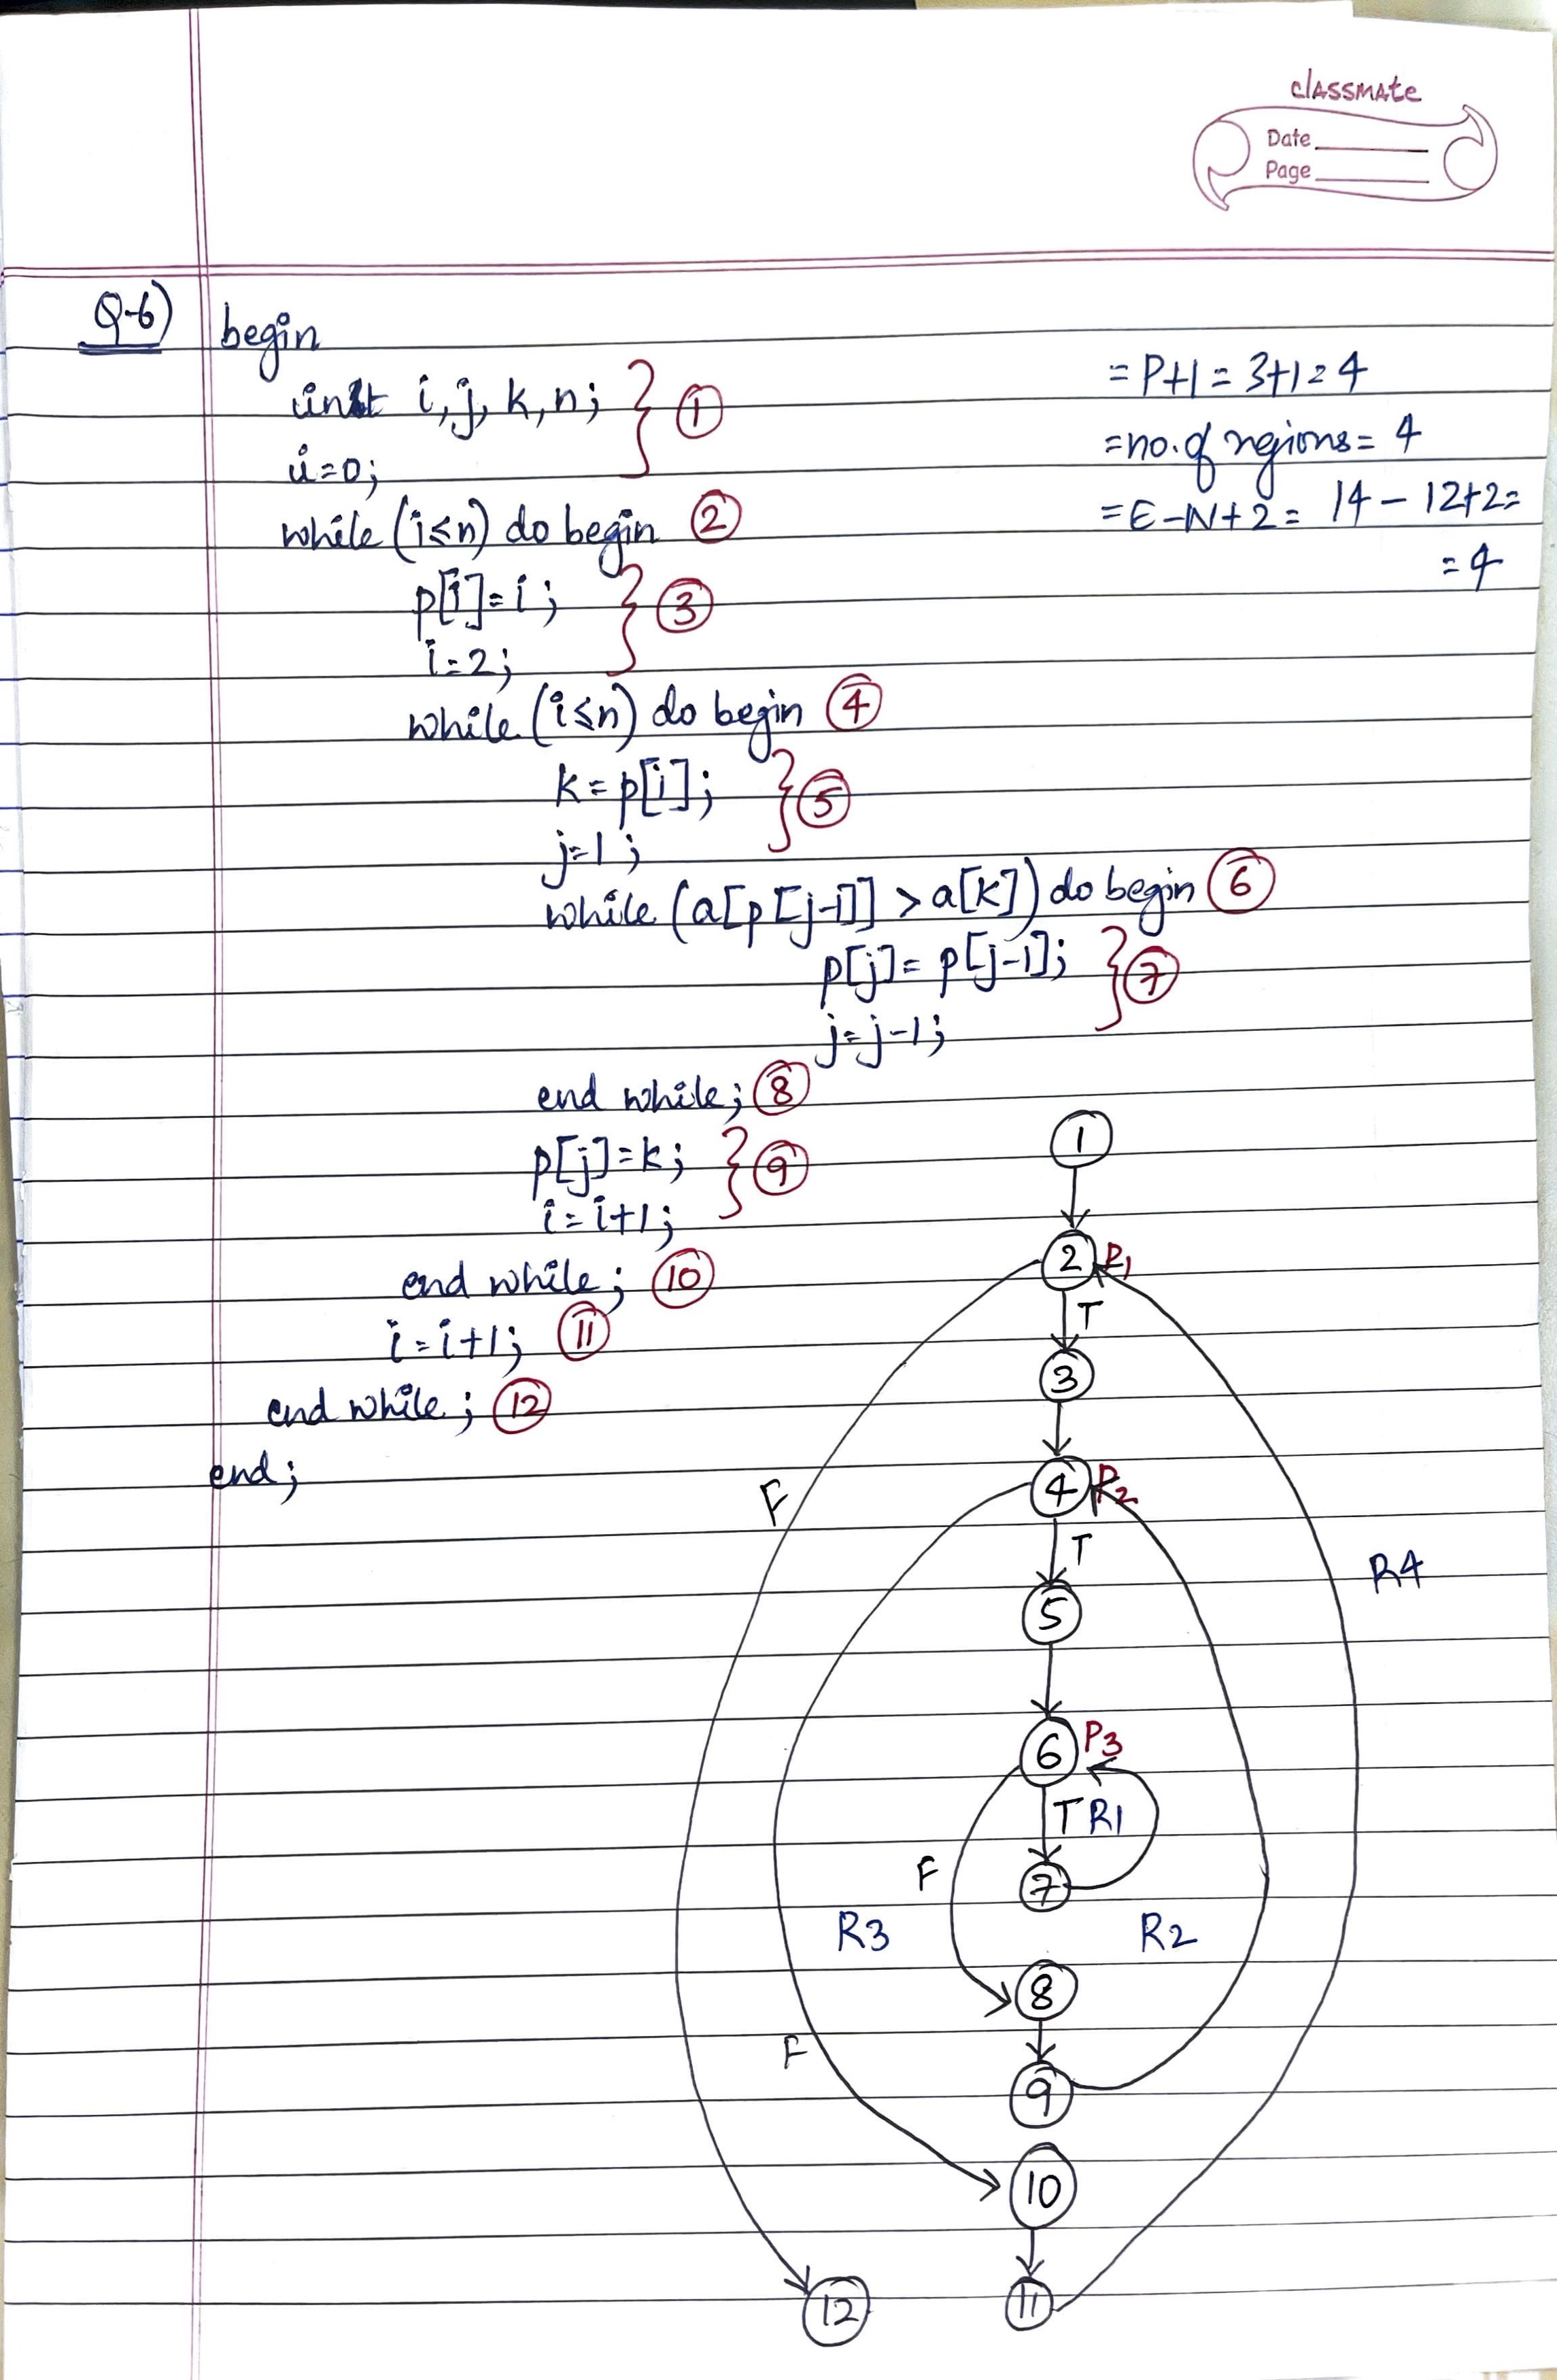 classmate
Date
Page
Q-6) begin
int i, j, k, n; } ①
i=0;
while (i≤n) do begin ②
p[i]=i; } ③
i=2;
while (i≤n) do begin ④
k=p[i]; } ⑤
j=1;
while (a[p[j-1]] > a[k]) do begin ⑥
p[j]=p[j-1]; } ⑦
j=j-1;
end while; ⑧
p[j]=k; } ⑨
i=i+1;
end while; ⑩
i=i+1; ⑪
end while; ⑫
end;
=P+1=3+1=4
=no. of regions=4
=E-N+2= 14-12+2=
=4
1
2 P1
T
3
F
4 P2
T
R4
5
6 P3
T R1
F
7
R3
R2
8
F
9
10
12
11